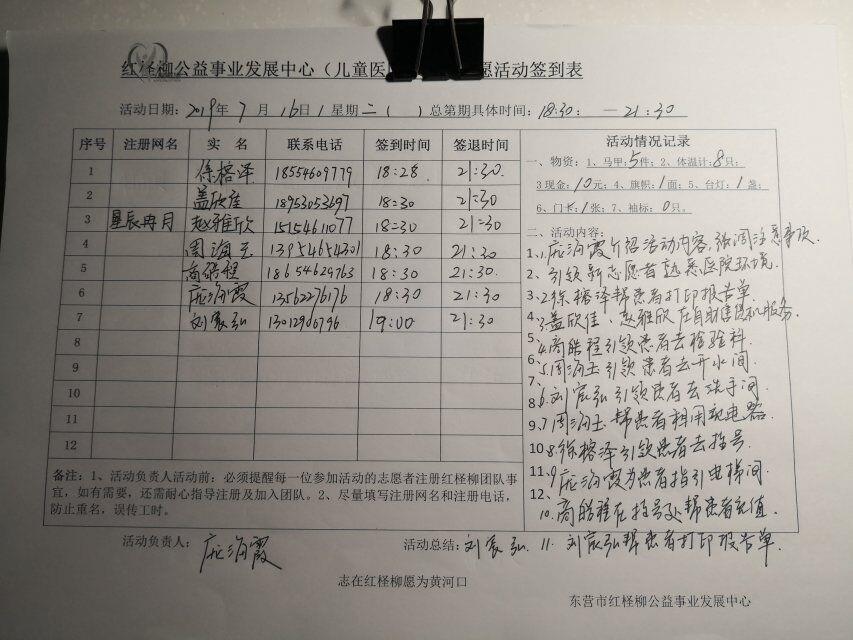 红柽柳公益事业发展中心（儿童医 愿活动签到表
活动日期：2019年7月16日/星期二（ ）总第期具体时间：18:30：—21:30
序号 注册网名 实 名 联系电话 签到时间 签退时间
1 徐榕泽 18554609779 18:28 21:30
2 盖欣佳 18953053697 18:30 21:30
3 星辰冉月 赵雅欣 15154611077 18:30 21:30
4 周海玉 13954654301 18:30 21:30
5 商皓程 18654629763 18:30 21:30
6 庞海霞 13562276176 18:30 21:30
7 刘宸弘 13012906796 19:00 21:30
8
9
10
11
12
活动情况记录
一、物资：1、马甲：5件；2、体温计：8只；
3 现金：10元；4、旗帜：1面；5、台灯：1盏；
6、门卡：1张；7、袖标：0只。
二、活动内容：
1、1.庞海霞介绍活动内容,强调注意事项.
2、引领新志愿者熟悉医院环境.
3、2.徐榕泽帮患者打印报告单.
4、3.盖欣佳、赵雅欣在自助售货机服务.
5、4.商皓程引领患者去检验科
6、5.周海玉引领患者去开水间
7、
8、6.刘宸弘引领患者去洗手间.
9、7.周海玉帮患者租用充电器
10、8.徐榕泽引领患者去挂号
11、9.庞海霞为患者指引电梯间.
12、
10.商皓程在挂号处帮患者充值.
11.刘宸弘帮患者打印报告单.
备注：1、活动负责人活动前：必须提醒每一位参加活动的志愿者注册红柽柳团队事
宜，如有需要，还需耐心指导注册及加入团队。2、尽量填写注册网名和注册电话，
防止重名，误传工时。
活动负责人：庞海霞 活动总结：刘宸弘.
志在红柽柳愿为黄河口
东营市红柽柳公益事业发展中心